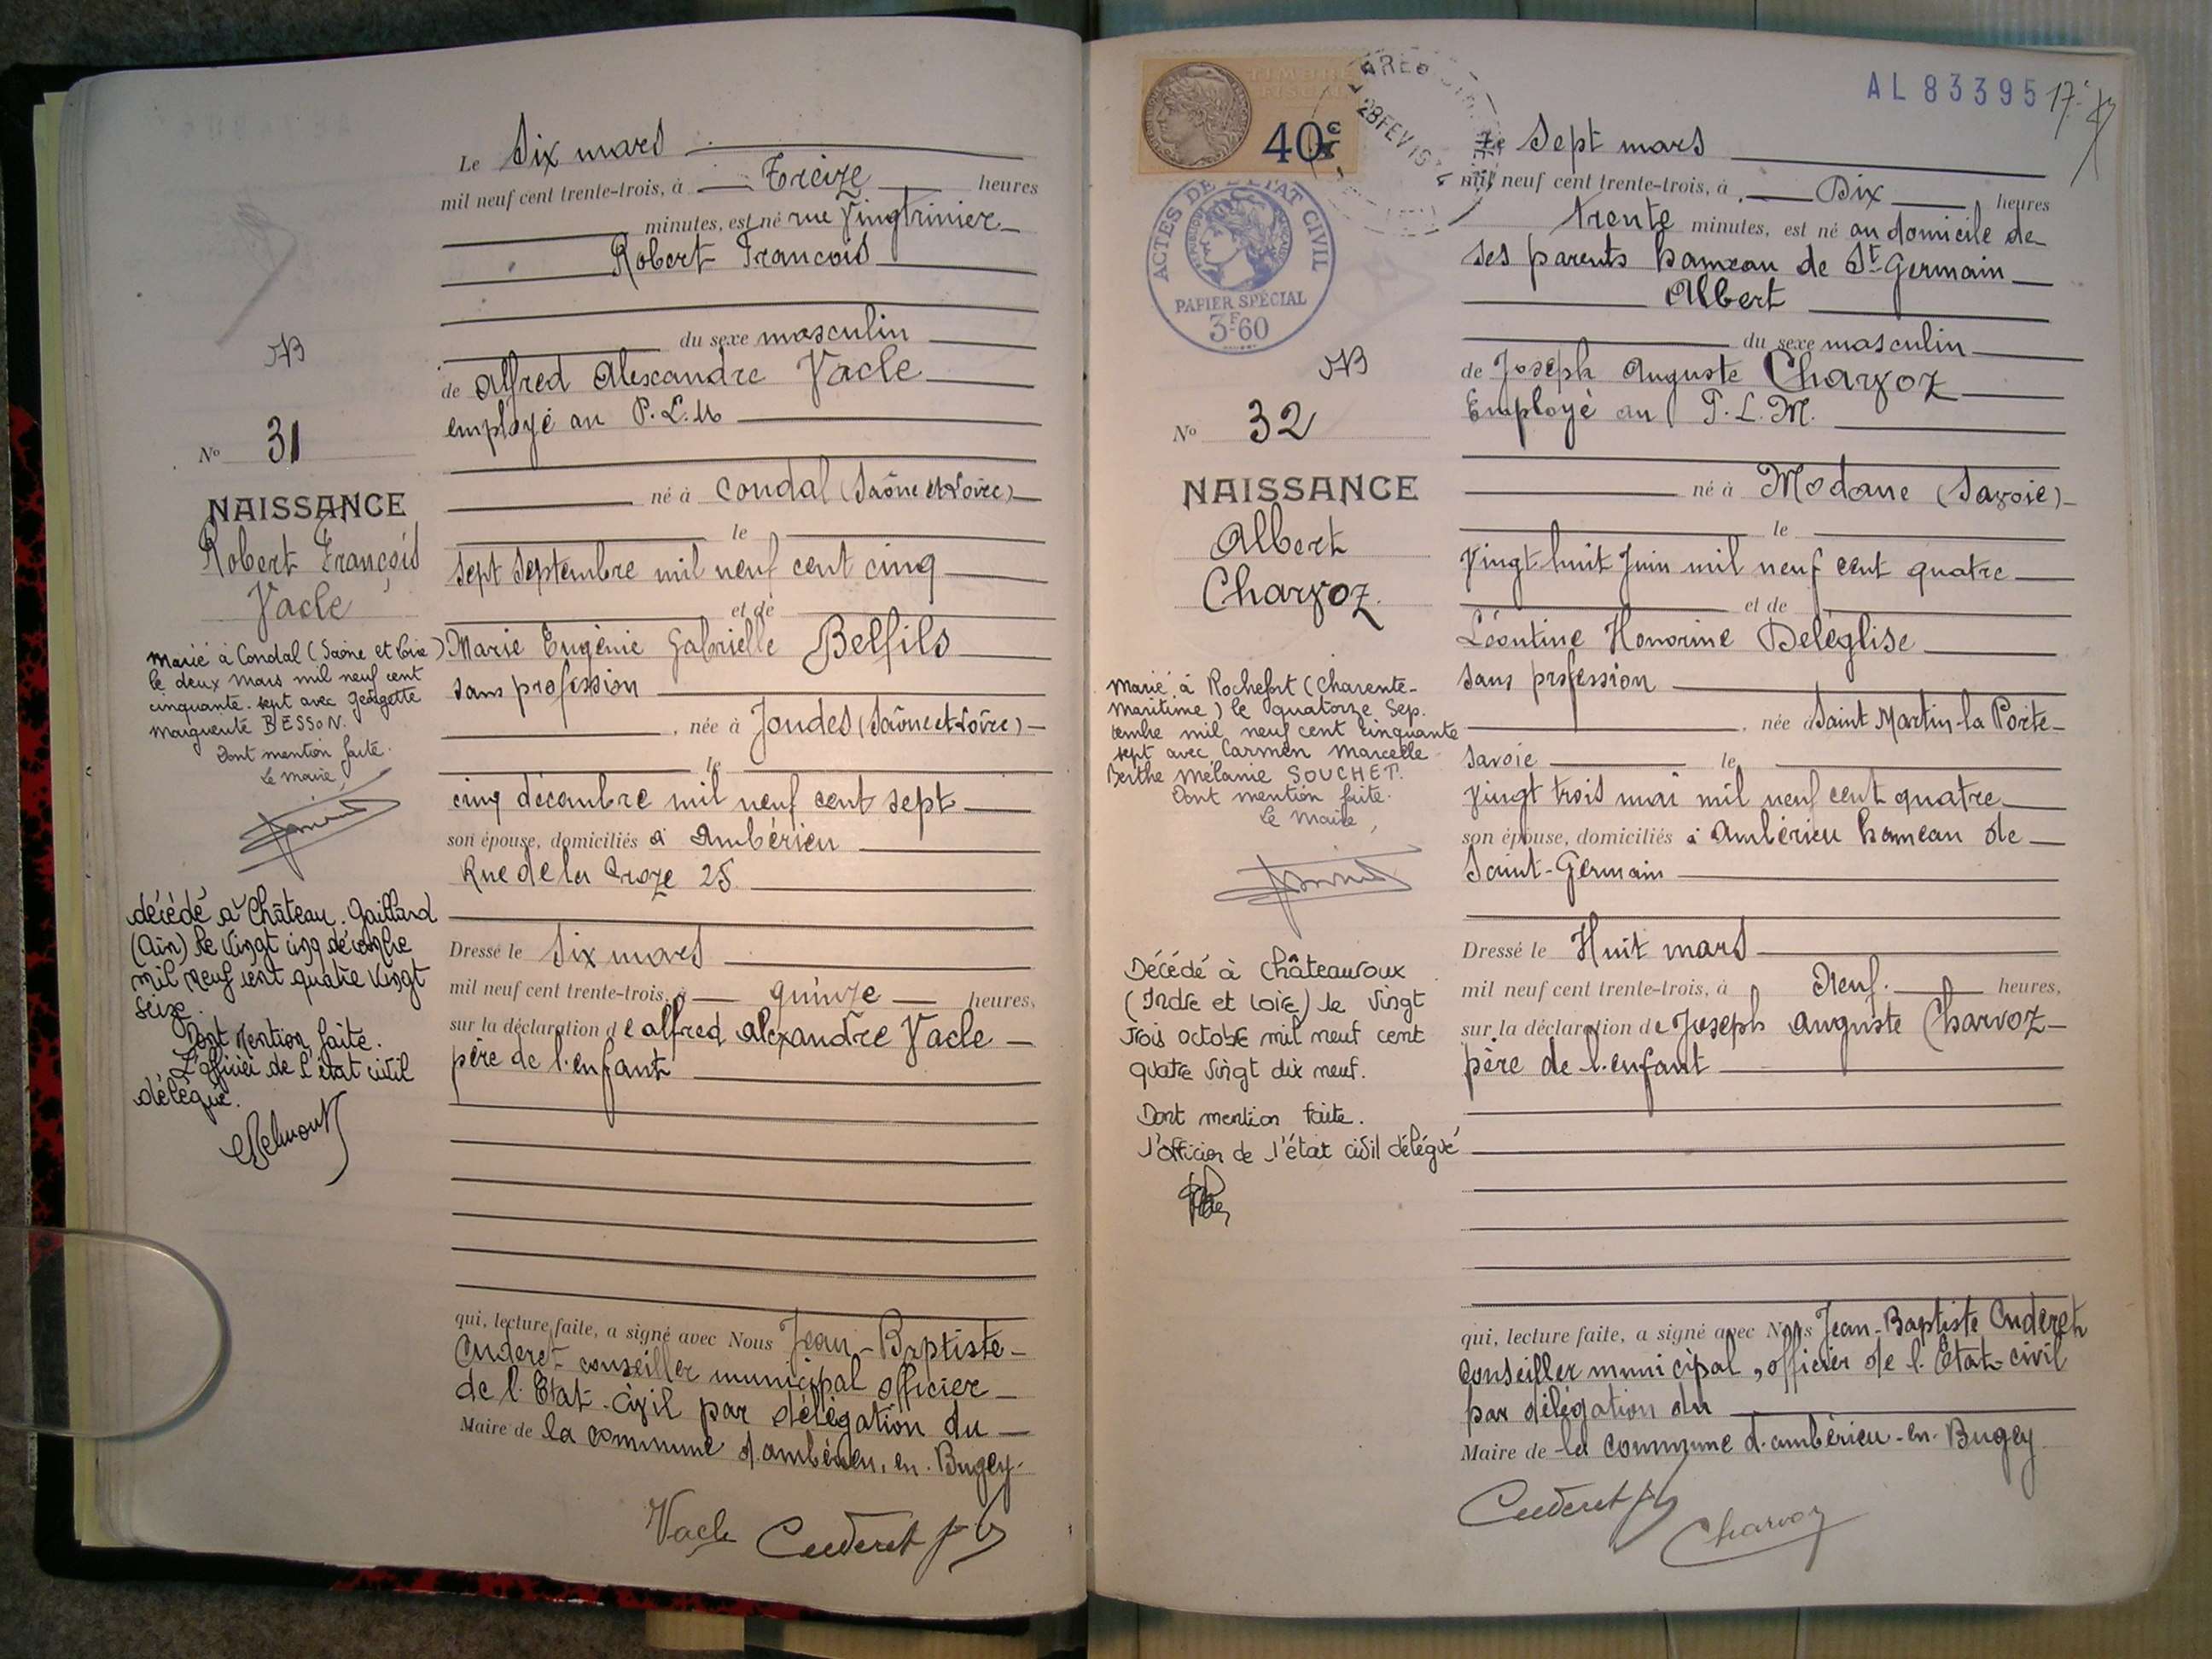 Le Six mars
mil neuf cent trente-trois, à Treize heures
minutes, est né rue Vingtrinier
Robert François
du sexe masculin
de Alfred Alexandre Vacle
employé au P.L.M
né à Condal (Saône et Loire)
le
sept septembre mil neuf cent cinq
et de
Marie Eugénie Gabrielle Belfils
sans profession
, née à Joudes (Saône et Loire)
le
cinq décembre mil neuf cent sept
son épouse, domiciliés à Ambérieu
Rue de la 25
Dressé le Six mars
mil neuf cent trente-trois, à quinze heures,
sur la déclaration de Alfred Alexandre Vacle
père de l'enfant
qui, lecture faite, a signé avec Nous Jean-Baptiste
Cuderet conseiller municipal officier
de l'Etat-civil par délégation du
Maire de la commune d'ambérieu, en-Bugey
Vacle Cuderet
JB
No 31
NAISSANCE
Robert François
Vacle
Marié à Condal (Saône et Loire)
le deux Mars mil neuf cent
cinquante-sept avec Georgette
Marguerite BESSON.
Dont mention faite.
Le Maire,
décédé à Château-Gaillard
(Ain) le vingt cinq décembre
mil neuf cent quatre vingt
seize.
Dont mention faite.
L'officier de l'état civil
délégué.
TIMBRE
FISCAL
40c
28 FEV 19
AL 83395
17
ACTES DE L'ETAT CIVIL
PAPIER SPÉCIAL
3F60
Le Sept mars
mil neuf cent trente-trois, à Dix heures
trente minutes, est né au domicile de
ses parents hameau de St-Germain
Albert
du sexe masculin
de Joseph Auguste Charvoz
Employé au P.L.M.
né à Modane (Savoie)
le
Vingt-huit Juin mil neuf cent quatre
et de
Léontine Honorine Deléglise
sans profession
, née à Saint Martin-la Porte
Savoie le
Vingt trois mai mil neuf cent quatre
son épouse, domiciliés à Ambérieu hameau de
Saint-Germain
Dressé le Huit mars
mil neuf cent trente-trois, à Neuf. heures,
sur la déclaration de Joseph Auguste Charvoz
père de l'enfant
qui, lecture faite, a signé avec Nous Jean-Baptiste Cuderet
Conseiller municipal, officier de l'Etat-civil
par délégation du
Maire de la commune d'ambérieu-en-Bugey
Cuderet Charvoz
JB
No 32
NAISSANCE
Albert
Charvoz.
Marié à Rochefort (Charente-
Maritime) le quatorze Sep-
tembre mil neuf cent cinquante
sept avec Carmen Marcelle
Berthe Mélanie SOUCHET.
Dont mention faite.
Le Maire,
Décédé à Châteauroux
(Indre et Loire) le vingt
trois octobre mil neuf cent
quatre vingt dix neuf.
Dont mention faite.
l'officier de l'état civil délégué